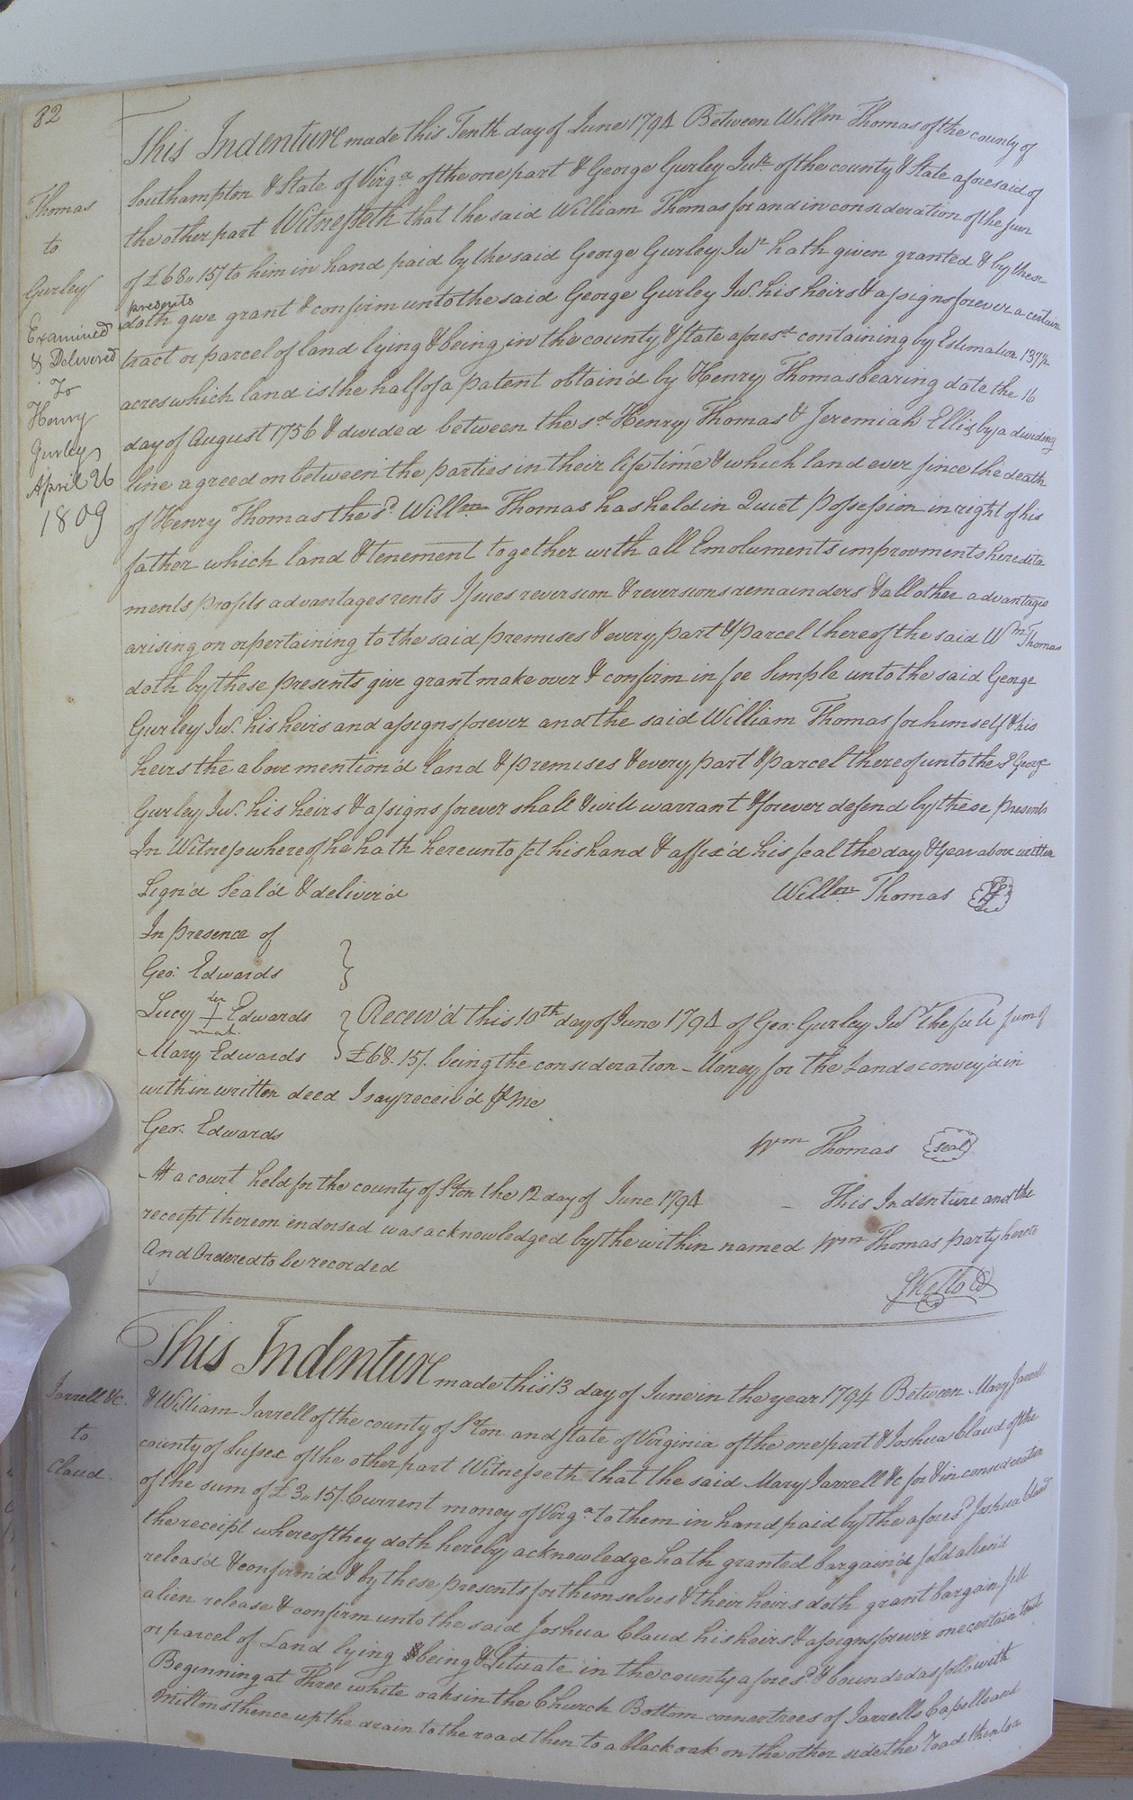 82
Thomas
to
Gurley
Examined
& Delivered
To
Henry
Gurley
April 26
1809
This Indenture made this Tenth day of June 1794 Between Willm Thomas of the county of
Southampton & State of Virga of the one part & George Gurley Junr of the county & State aforesaid of
the other part Witnesseth that the said William Thomas for and in consideration of the sum
of £68.. 15/ to him in hand paid by the said George Gurley Junr hath given granted & by these
presents
doth give grant & confirm unto the said George Gurley Jur. his heirs & assigns forever a certain
tract or parcel of land lying & being in the county & State aforesd containing by Estimation 137½
acres which land is the half of a patent obtain'd by Henry Thomas bearing date the 16
day of August 1756 & divided between the sd Henry Thomas & Jeremiah Ellis by a dividing
line agreed on between the parties in their life time & which land ever since the death
of Henry Thomas the sd Willm Thomas has held in Quiet Possession in right of his
father which land & tenement together with all Emoluments improvments heredita
ments profits advantages rents Issues reversion & reversions remainders & all other advantages
arising on or pertaining to the said premises & every part & parcel thereof the said Wm Thomas
doth by these presents give grant make over & confirm in fee Simple unto the said George
Gurley Jur. his heirs and assigns forever and the said William Thomas for himself & his
heirs the above mention'd land & premises & every part & parcel thereof unto the sd George
Gurley Jur. his heirs & assigns forever shall & will warrant & forever defend by these presents
In Witness whereof he hath hereunto set his hand & affix'd his seal the day & Year above written
Sign'd Seal'd & deliver'd Willm Thomas
In presence of
Geo: Edwards
her
Lucy + Edwards Receiv'd this 10th day of June 1794 of Geo: Gurley Junr The full sum of
mark
Mary Edwards £68.15/. being the consideration Money for the Lands convey'd in
within written deed I say receiv'd Pr Me
Geo: Edwards Wm Thomas seal
At a court held for the county of S.ton the 12 day of June 1794 This Indenture and the
receipt thereon endorsed was acknowledged by the within named Wm Thomas party hereto
And Ordered to be recorded
Jarrell &c.
to
Claud.
This Indenture made this 13 day of June in the year 1794 Between Mary Jarrell
& William Jarrell of the county of S.ton and State of Virginia of the one part & Joshua Claud of the
county of Sussex of the other part Witnesseth that the said Mary Jarrell &c for & in consideration
of the sum of £3.. 15/. Current money of Virga to them in hand paid by the aforesd Joshua Claud
the receipt whereof they doth hereby acknowledge hath granted bargain'd sold alien'd
releas'd & confirm'd & by these presents for themselves & their heirs doth grant bargain sell
alien release & confirm unto the said Joshua Claud his heirs & assigns forever one certain tract
or parcel of Land lying & being & Situate in the county aforesd & bounded as follo with
Beginning at Three white oaks in the Church Bottom corner trees of Jarrells Capells and
Miltons thence up the drain to the road then to a black oak on the other side the road then to a